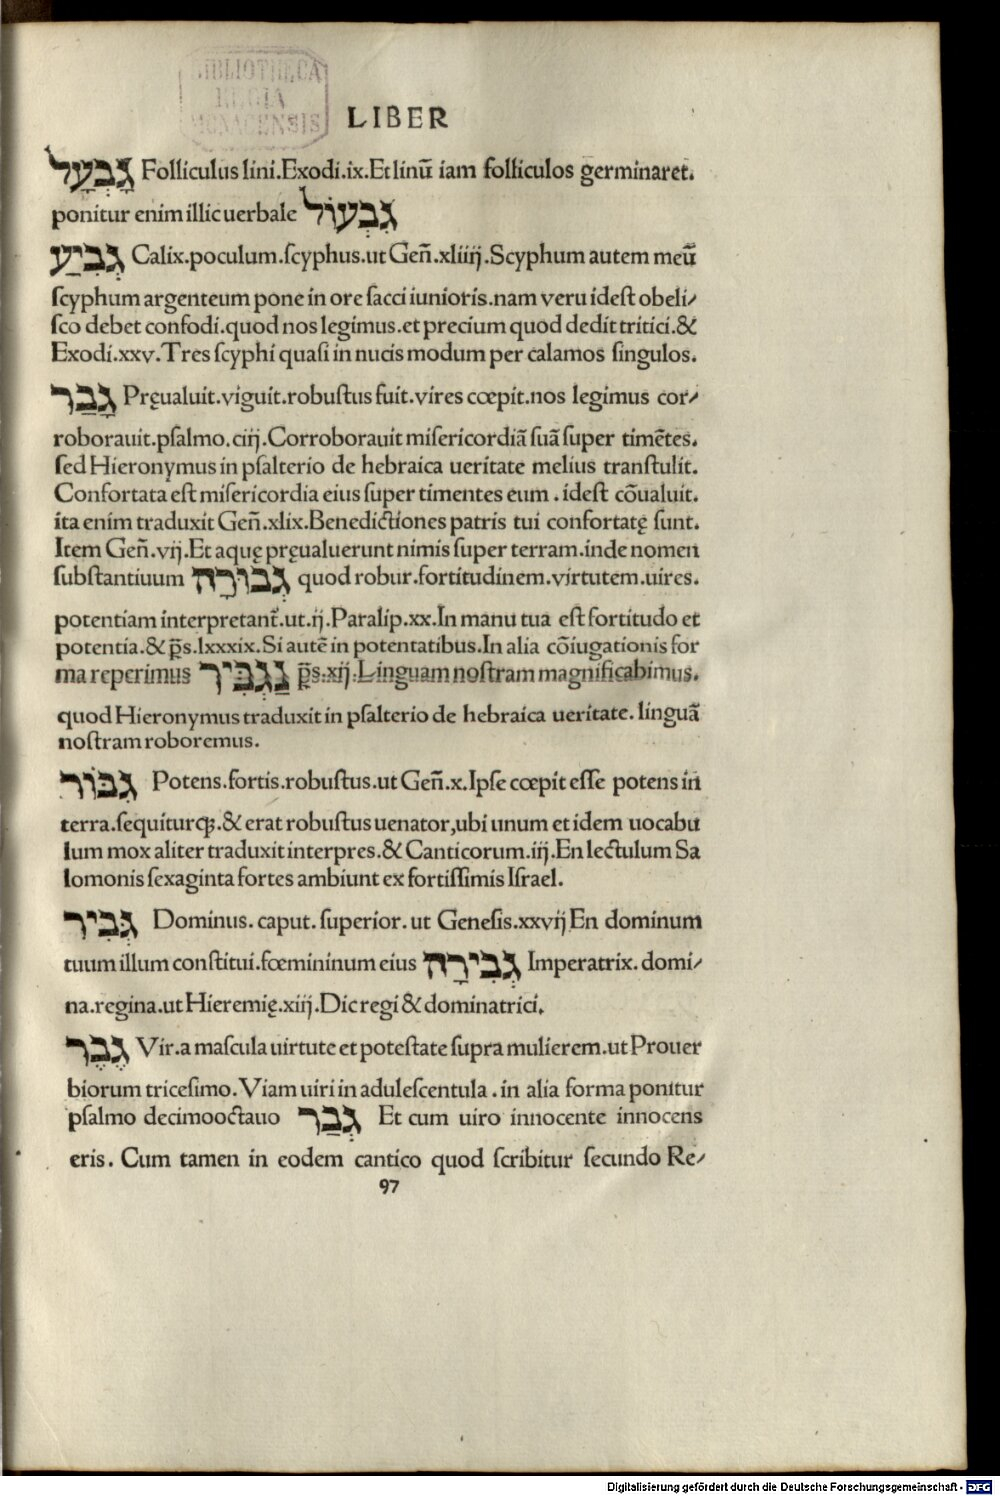 BIBLIOTHECA
REGIA
MONACENSIS
LIBER
גָּבְעָל Folliculus lini.Exodi.ix.Et linū iam folliculos germinaret.
ponitur enim illic uerbale גִּבְעוֹל
גְּבִיעַ Calix.poculum.ſcyphus.ut Geñ.xliiij.Scyphum autem meū
ſcyphum argenteum pone in ore ſacci iunioris.nam veru ideſt obeli⸗
ſco debet confodi.quod nos legimus.et precium quod dedit tritici.&
Exodi.xxv.Tres ſcyphi quaſi in nucis modum per calamos ſingulos.
גָּבַר Pręualuit.viguit.robuſtus fuit.vires cœpit.nos legimus cor⸗
roborauit.pſalmo.ciij.Corroborauit miſericordiā ſuā ſuper timētes.
ſed Hieronymus in pſalterio de hebraica ueritate melius tranſtulit.
Confortata eſt miſericordia eius ſuper timentes eum.ideſt cōualuit.
ita enim traduxit Geñ.xlix.Benedictiones patris tui confortatę ſunt.
Item Geñ.vij.Et aquę pręualuerunt nimis ſuper terram.inde nomen
ſubſtantiuum גְּבוּרָה quod robur.fortitudinem.virtutem.uires.
potentiam interpretant᷑.ut.ij.Paralip.xx.In manu tua eſt fortitudo et
potentia.& p̄s.lxxxix.Si autē in potentatibus.In alia cōiugationis for
ma reperimus נַגְבִּיר p̄s.xij.Linguam noſtram magnificabimus.
quod Hieronymus traduxit in pſalterio de hebraica ueritate.linguā
noſtram roboremus.
גִּבּוֹר Potens.fortis.robuſtus.ut Geñ.x.Ipſe cœpit eſſe potens in
terra.ſequiturꝗ.& erat robuſtus uenator,ubi unum et idem uocabu
lum mox aliter traduxit interpres.& Canticorum.iij.En lectulum Sa
lomonis ſexaginta fortes ambiunt ex fortiſſimis Iſrael.
גְּבִיר Dominus.caput.ſuperior.ut Geneſis.xxvij En dominum
tuum illum conſtitui.fœmininum eius גְּבִירָה Imperatrix.domi⸗
na.regina.ut Hieremię.xiij.Dic regi & dominatrici.
גֶּבֶר Vir.a maſcula uirtute et poteſtate ſupra mulierem.ut Prouer
biorum triceſimo.Viam uiri in aduleſcentula.in alia forma ponitur
pſalmo decimooctauo גְּבַר Et cum uiro innocente innocens
eris.Cum tamen in eodem cantico quod ſcribitur ſecundo Re⸗
97
Digitalisierung gefördert durch die Deutsche Forschungsgemeinschaft - DFG